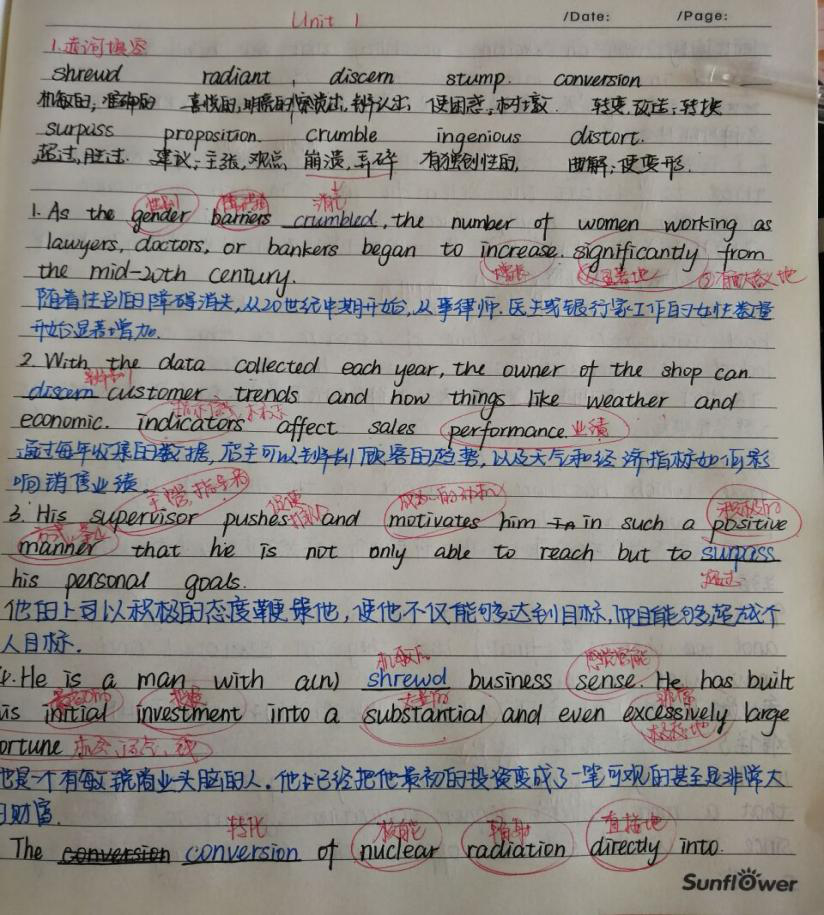 Unit 1 /Date: /Page:
1.选词填空
shrewd radiant discern stump. conversion
机敏的; 准确的 喜悦的,明亮的 察觉出,辨认出 使困惑,树墩. 转变,改造;转换
surpass proposition. crumble ingenious distort.
超过,胜过. 建议;主张,观点 崩溃,弄碎 有独创性的, 曲解;使变形.
性别 障碍 消失
1. As the gender barriers crumbled, the number of women working as
lawyers, doctors, or bankers began to increase significantly from
the mid-20th century. 增长 ①显著地 ②有意义地
随着性别的障碍消失,从20世纪中期开始,从事律师.医生或银行家工作的女性数量
开始显著增加.
2. With the data collected each year, the owner of the shop can
discern customer trends and how things like weather and
economic. indicators affect sales performance. 业绩
通过每年收集的数据,店主可以判别顾客的趋势,以及天气和经济指标如何影
响销售业绩
主管,指导者 促使
3. His supervisor pushes and motivates him in such a positive
manner that he is not only able to reach but to surpass
his personal goals. 超过
他的上司以积极的态度鞭策他,使他不仅能够达到目标,而且能够超越个
人目标.
机敏的 感觉官能
He is a man with a(n) shrewd business sense. He has built
is initial investment into a substantial and even excessively large
ortune
是一个有敏锐商业头脑的人.他已经把他最初的投资变成了一笔可观的甚至是非常大
财富.
转化 核能 辐射 直接地
The conversion conversion of nuclear radiation directly into.
Sunflower